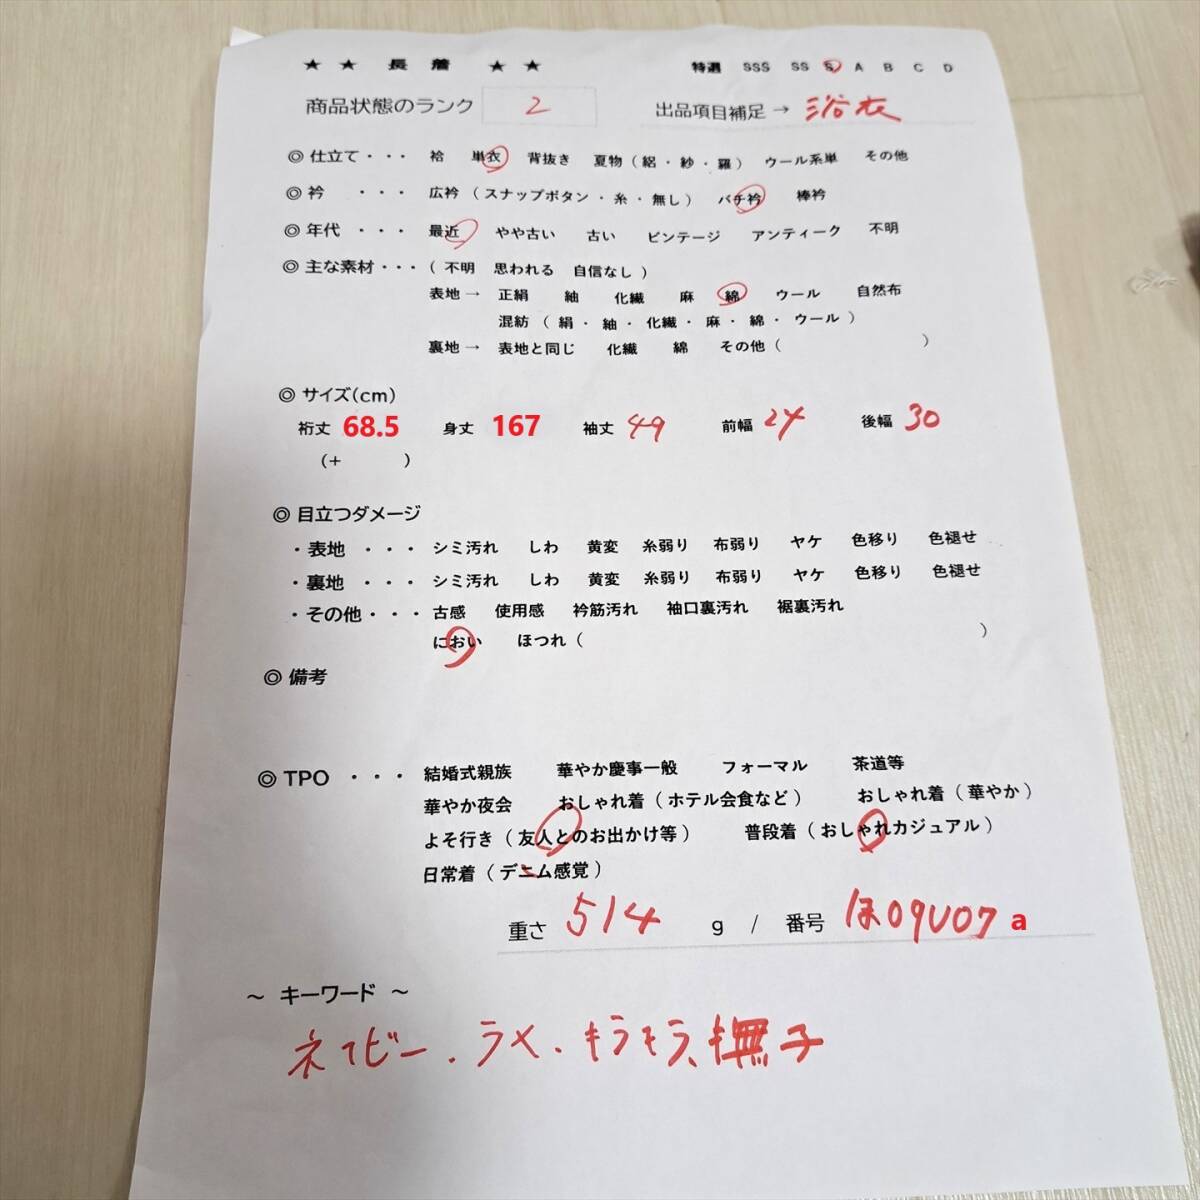 ★ ★ 長 着 ★ ★ 特選 SSS SS S A B C D
商品状態のランク 2 出品項目補足 → 浴衣
◎ 仕立て・・・ 袷 単衣 背抜き 夏物 ( 絽・紗・羅 ) ウール系単 その他
◎ 衿 ・・・ 広衿 ( スナップボタン・糸・無し ) バチ衿 棒衿
◎ 年代 ・・・ 最近 やや古い 古い ビンテージ アンティーク 不明
◎ 主な素材・・・ ( 不明 思われる 自信なし )
表地 → 正絹 紬 化繊 麻 綿 ウール 自然布
混紡 ( 絹・紬・化繊・麻・綿・ウール )
裏地 → 表地と同じ 化繊 綿 その他 ( )
◎ サイズ(cm)
裄丈 68.5 身丈 167 袖丈 49 前幅 24 後幅 30
(+ )
◎ 目立つダメージ
・表地 ・・・ シミ汚れ しわ 黄変 糸弱り 布弱り ヤケ 色移り 色褪せ
・裏地 ・・・ シミ汚れ しわ 黄変 糸弱り 布弱り ヤケ 色移り 色褪せ
・その他・・・ 古感 使用感 衿筋汚れ 袖口裏汚れ 裾裏汚れ
におい ほつれ ( )
◎ 備考
◎ TPO ・・・ 結婚式親族 華やか慶事一般 フォーマル 茶道等
華やか夜会 おしゃれ着 ( ホテル会食など ) おしゃれ着 ( 華やか )
よそ行き ( 友人とのお出かけ等 ) 普段着 ( おしゃれカジュアル )
日常着 ( デニム感覚 )
重さ 514 g / 番号 ほ09U07 a
～ キーワード ～
ネイビー、ラメ、キラキラ、撫子